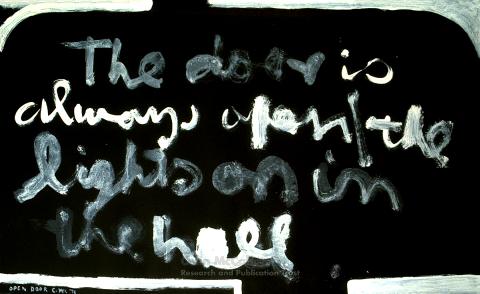 The door is
always open/the
lights on in
the hall
Research and Publication Trust
OPEN DOOR C. McC 76